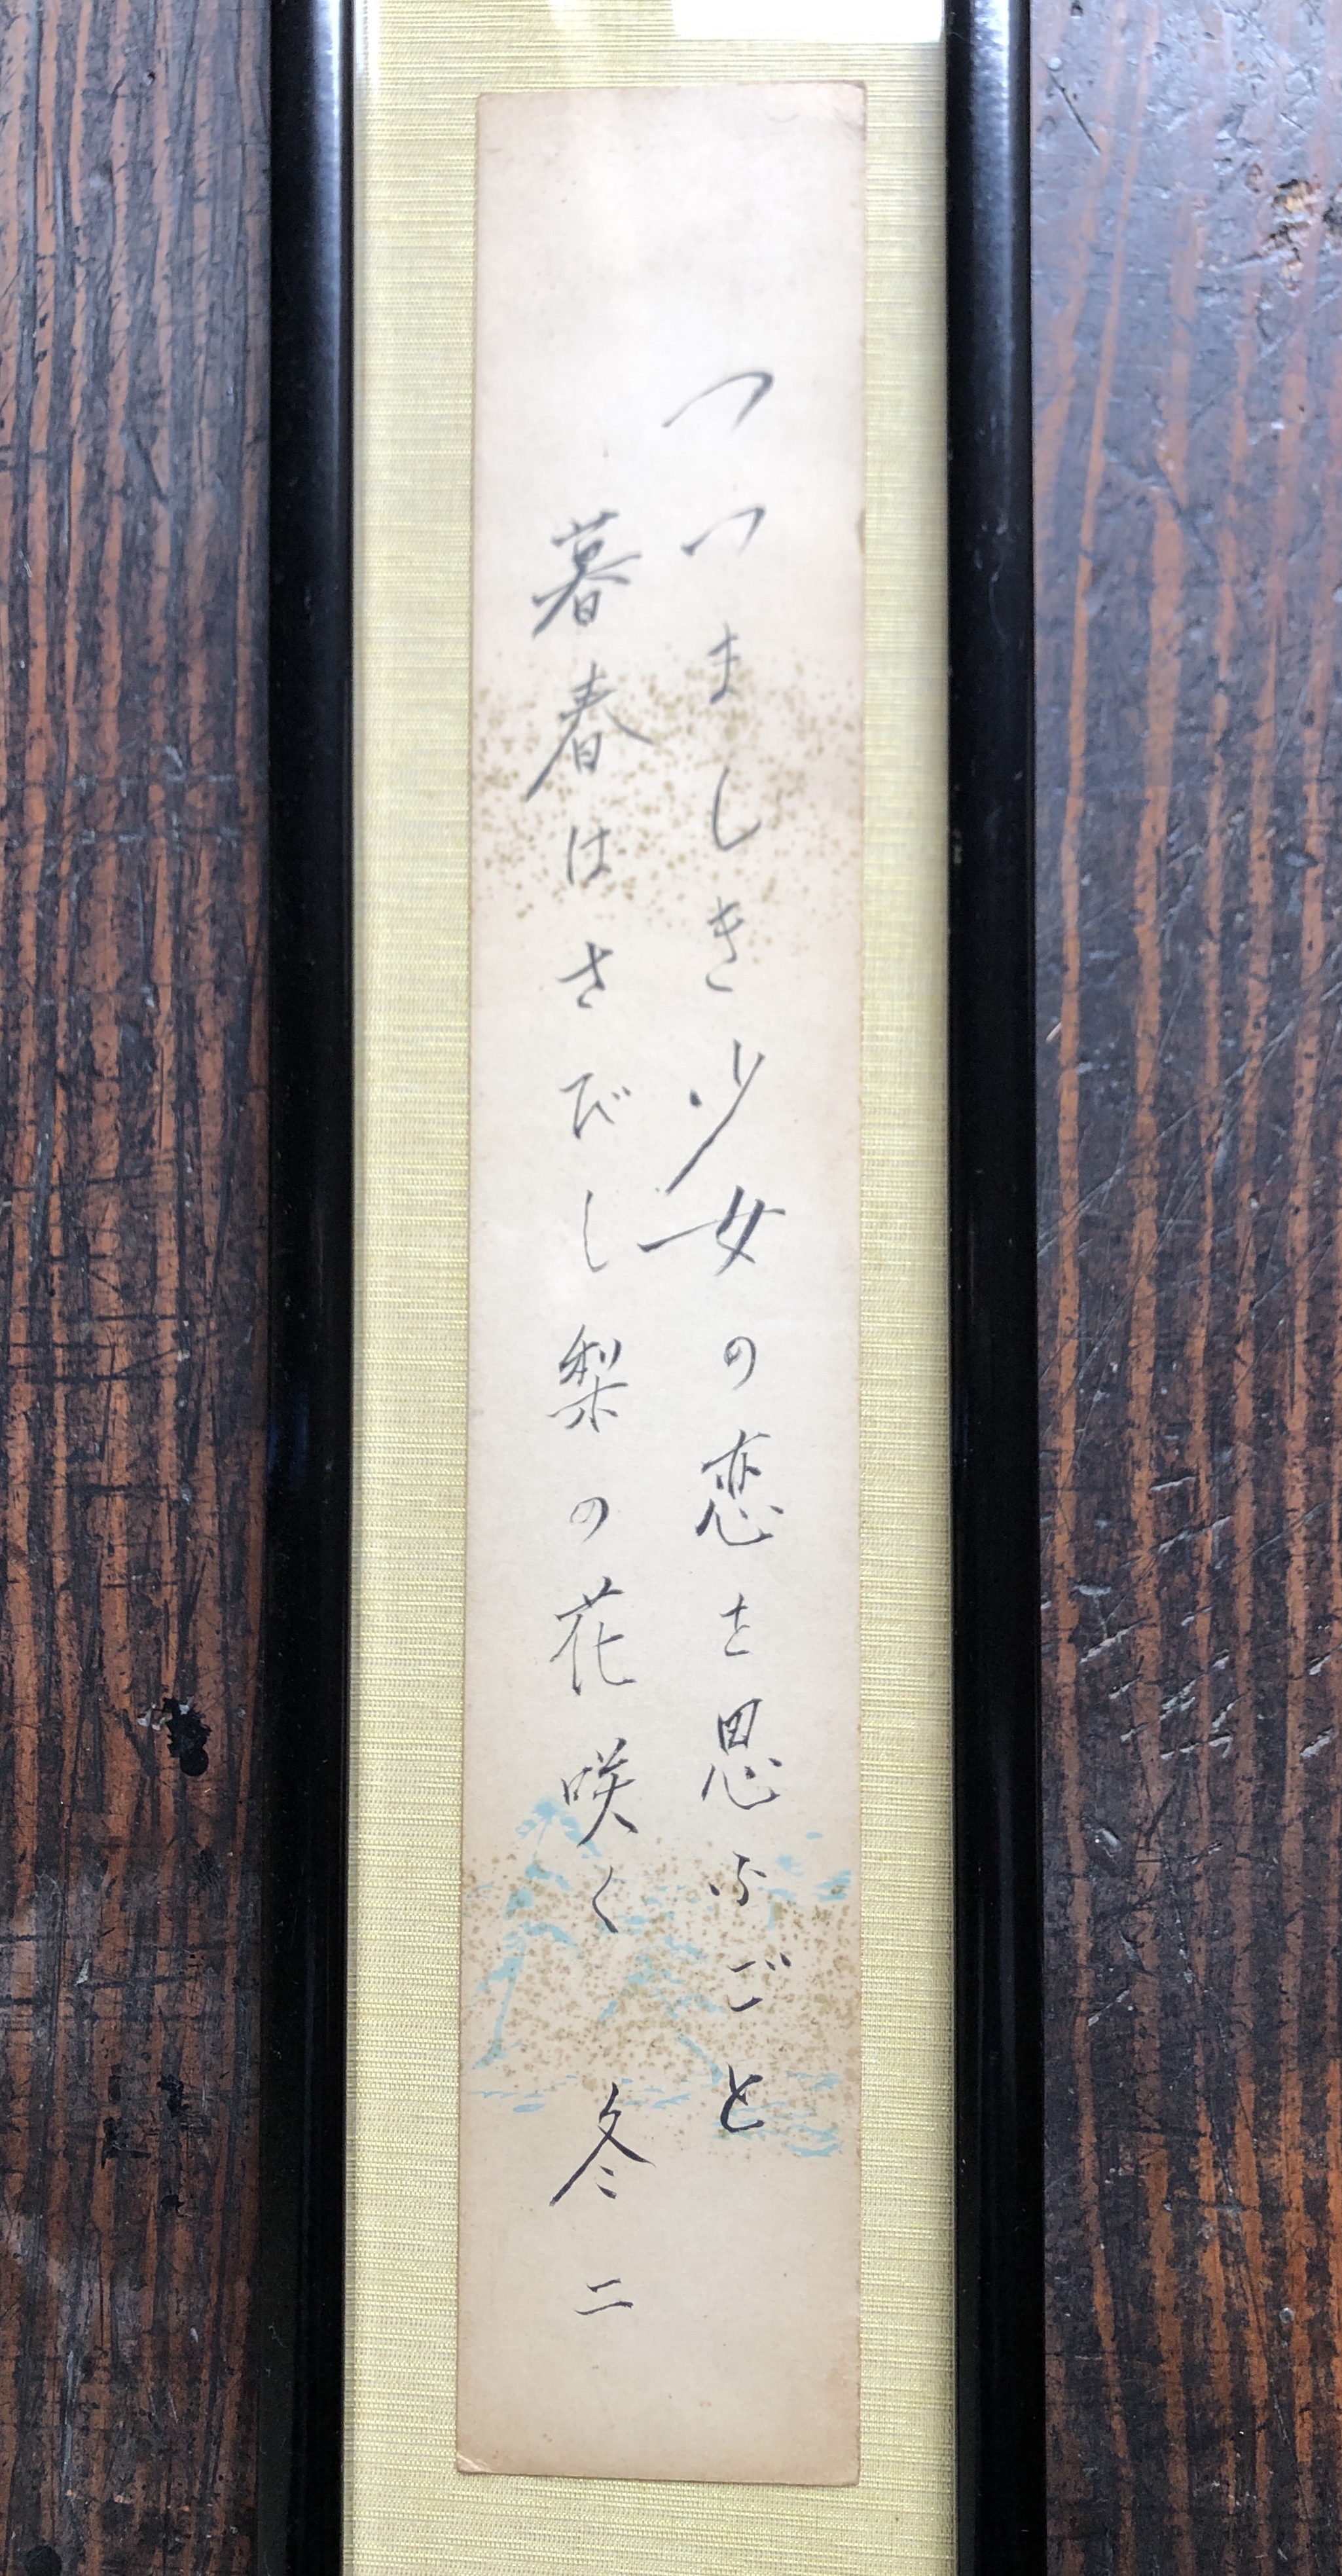 つつましき少女の恋を思ふごと
暮春はさびし梨の花咲く 冬二